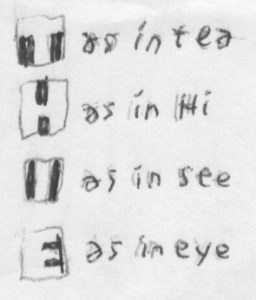 T as in tea
H as in Hi
C as in see
E as in eye